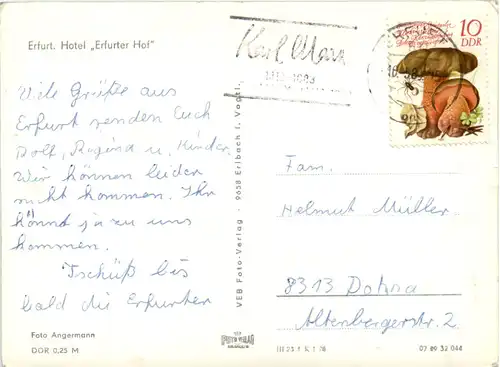 Erfurt. Hotel „Erfurter Hof"
Viele Grüße aus
Erfurt senden Euch
Rolf, Regina u. Kinder.
Wir können leider
nicht kommen. Ihr
könnt ja zu uns
kommen.
Tschüß bis
bald die Erfurter
Foto Angermann
DDR 0,25 M
VEB Foto-Verlag · 9658 Erlbach i. Vogtl.
FOTO VERLAG
Karl Marx
10
DDR
Fam.
Helmut Müller
8313 Dohna
Altenbergerstr. 2
02 09 32 044